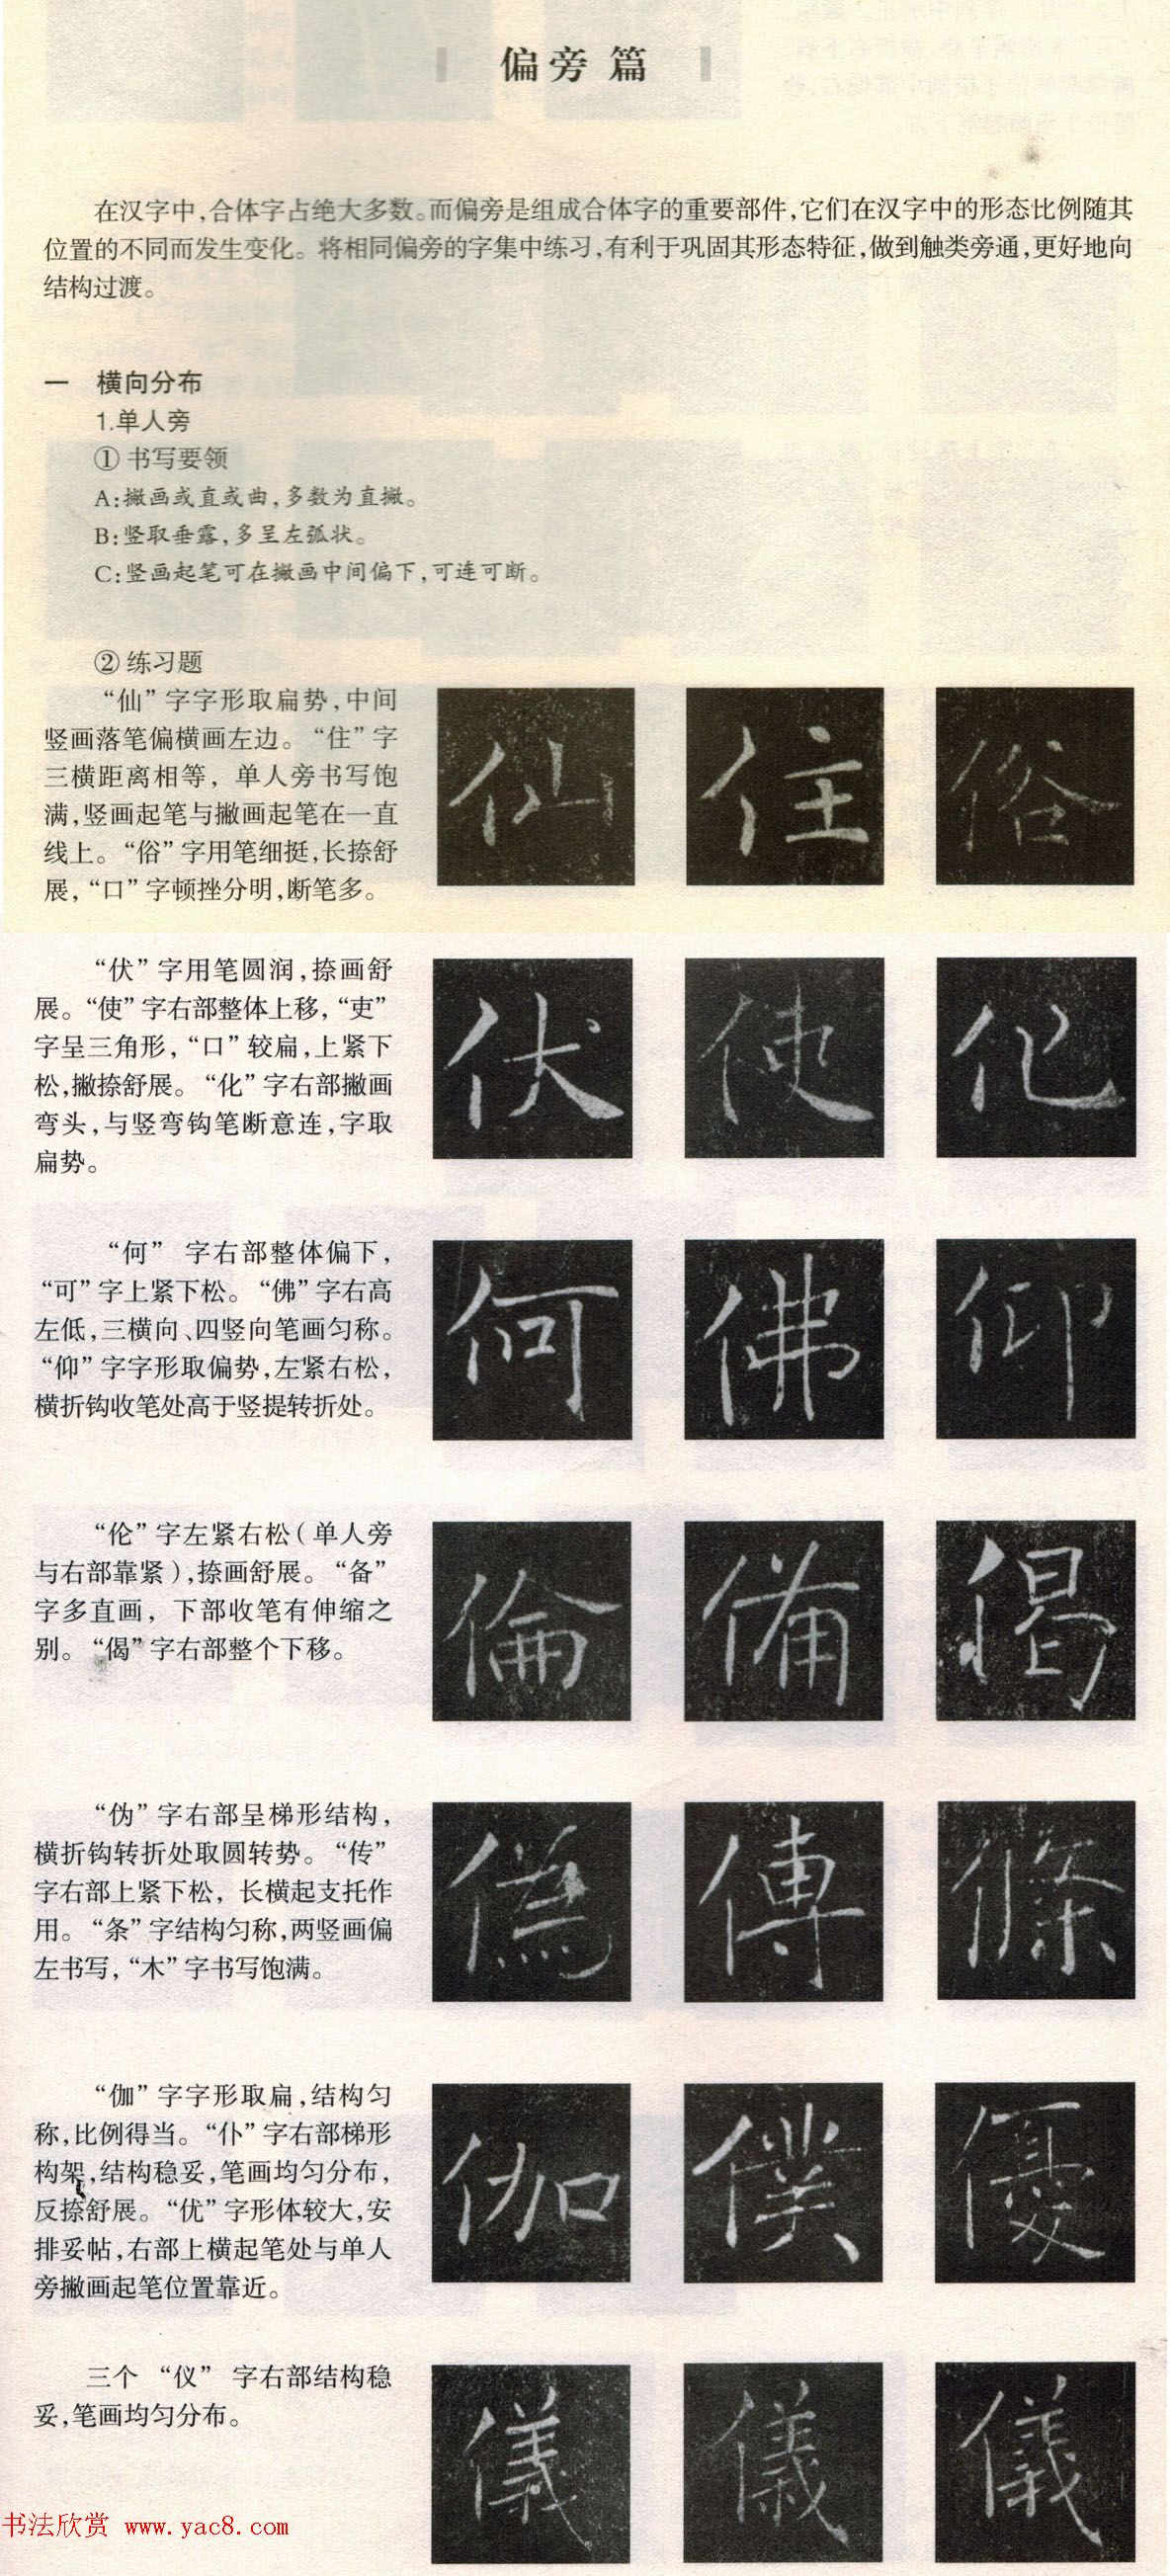 偏旁篇
在汉字中,合体字占绝大多数。而偏旁是组成合体字的重要部件,它们在汉字中的形态比例随其
位置的不同而发生变化。将相同偏旁的字集中练习,有利于巩固其形态特征,做到触类旁通,更好地向
结构过渡。
一 横向分布
1.单人旁
① 书写要领
A:撇画或直或曲,多数为直撇。
B:竖取垂露,多呈左弧状。
C:竖画起笔可在撇画中间偏下,可连可断。
② 练习题
“仙”字字形取扁势,中间
竖画落笔偏横画左边。“住”字
三横距离相等,单人旁书写饱
满,竖画起笔与撇画起笔在一直
线上。“俗”字用笔细挺,长捺舒
展,“口”字顿挫分明,断笔多。
仙 住 俗
“伏”字用笔圆润,捺画舒
展。“使”字右部整体上移,“吏”
字呈三角形,“口”较扁,上紧下
松,撇捺舒展。“化”字右部撇画
弯头,与竖弯钩笔断意连,字取
扁势。
伏 使 化
“何” 字右部整体偏下,
“可”字上紧下松。“佛”字右高
左低,三横向、四竖向笔画匀称。
“仰”字字形取偏势,左紧右松,
横折钩收笔处高于竖提转折处。
何 佛 仰
“伦”字左紧右松(单人旁
与右部靠紧),捺画舒展。“备”
字多直画,下部收笔有伸缩之
别。“偈”字右部整个下移。
倫 備 偈
“伪”字右部呈梯形结构,
横折钩转折处取圆转势。“传”
字右部上紧下松,长横起支托作
用。“条”字结构匀称,两竖画偏
左书写,“木”字书写饱满。
偽 傳 條
“伽”字字形取扁,结构匀
称,比例得当。“仆”字右部梯形
构架,结构稳妥,笔画均匀分布,
反捺舒展。“优”字形体较大,安
排妥帖,右部上横起笔处与单人
旁撇画起笔位置靠近。
伽 僕 優
三个 “仪” 字右部结构稳
妥,笔画均匀分布。
儀 儀 儀
书法欣赏 www.yac8.com